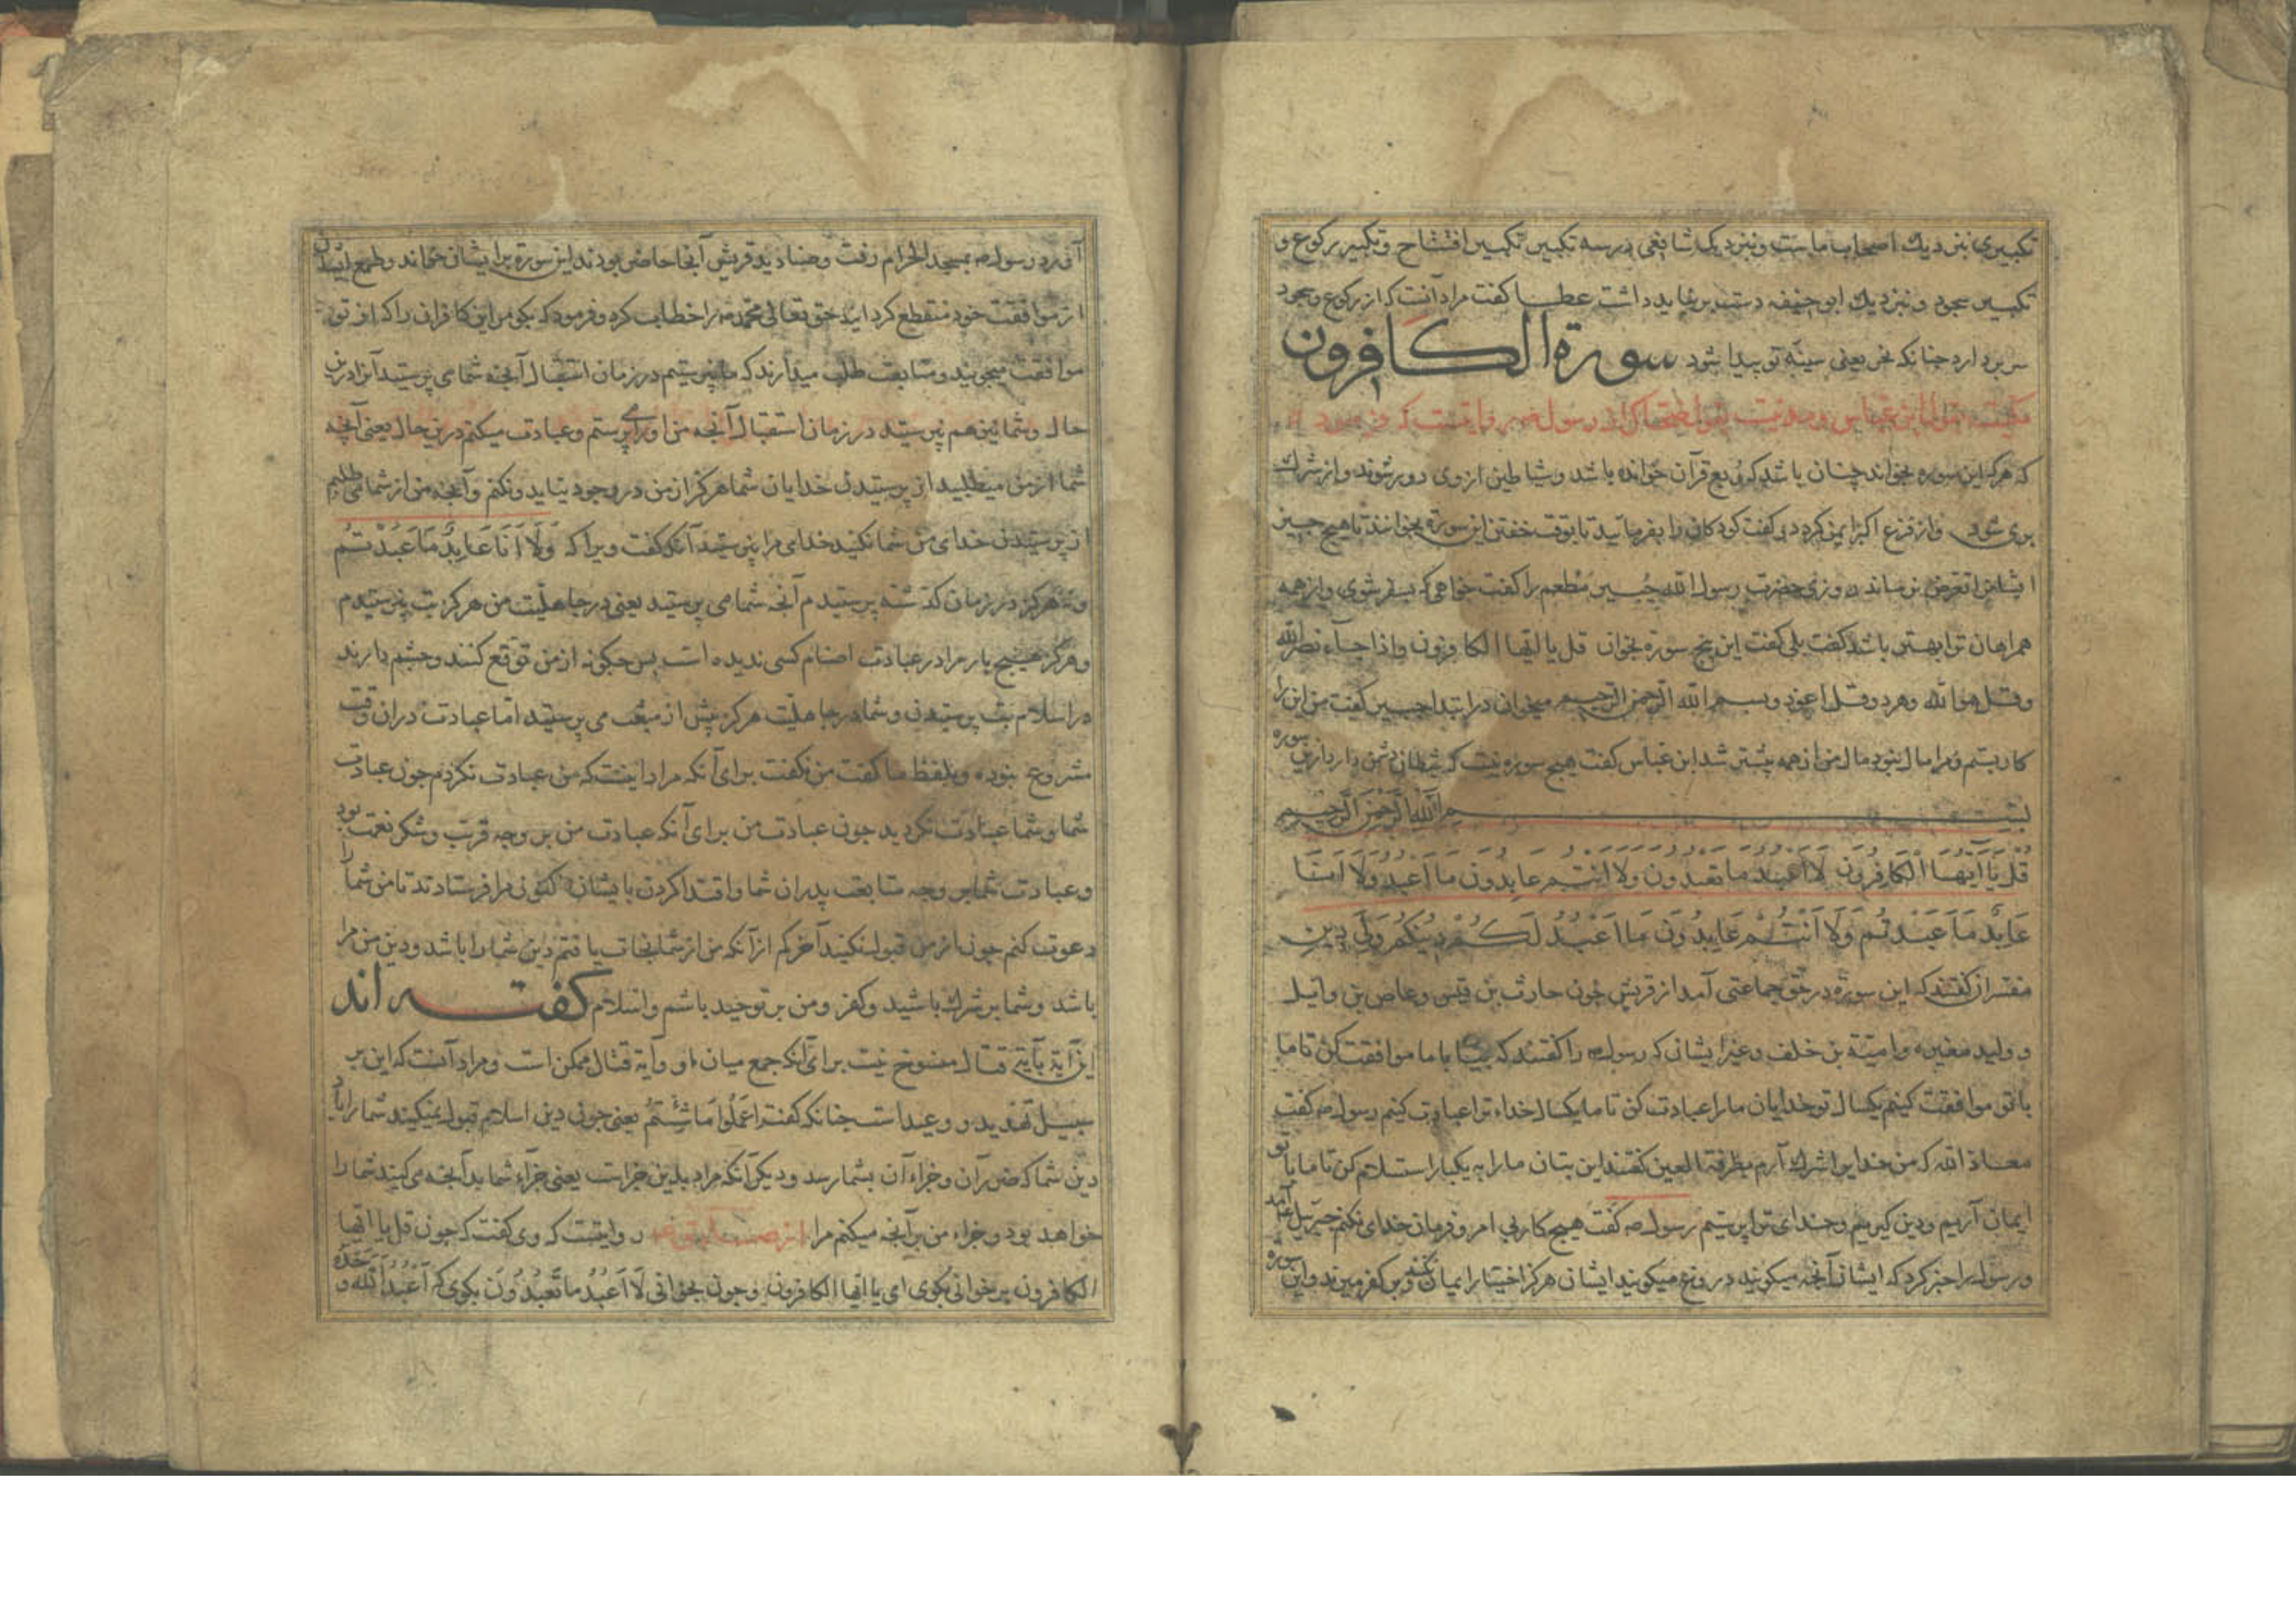 تکبیری نیزدیك اصحاب ماست و نیزدیک شافعی در سه تکبیر تکبیر افتتاح و تکبیر رکوع و
تکبیر سجود و نیزدیك ابو حنیفه دست برنباید داشت عطا کفت مراد آنست که از رکوع و سجود
سر بردارد چنانکه نحر یعنی سینه تو پیدا شود سورة الکافرون
مکیست بقول ابن عباس و مدنیست بقول ضحاک از رسول روایتست که فرمود
که هر که این سوره بخواند چنان باشد که ربع قرآن خوانده باشد و شیاطین از وی دور شوند و از شرك
بری شود و از فزع اکبر ایمن کردد و کفت کودکان را بفرمایید تا بوقت خفتن این سوره بخوانند تا هیچ چیز
ایشانرا تعرض نرساند روزی حضرت رسول الله جبیر مطعم را کفت خواهی که بسفر شوی و از همه
همراهان ترا بهتر باشد کفت بلی کفت این پنج سوره بخوان قل یا ایها الکافرون و اذا جاء نصر الله
و قل هو الله و هر دو قل اعوذ و بسم الله الرحمن الرحیم میخوان در ابتدا جبیر کفت من این را
کار بستم و مرا مال نبود مال من از همه بیشتر شد ابن عباس کفت هیچ سوره نیست که شیطان دشمن دارد از این سوره
بسم الله الرحمن الرحیم
قُلْ یَا اَیُّهَا الْکَافِرُونَ لَا اَعْبُدُ مَا تَعْبُدُونَ وَلَا اَنْتُمْ عَابِدُونَ مَا اَعْبُدُ وَلَا اَنَا
عَابِدٌ مَا عَبَدْتُمْ وَلَا اَنْتُمْ عَابِدُونَ مَا اَعْبُدُ لَکُمْ دِینُکُمْ وَلِیَ دِینِ
مفسران کفتند که این سوره در حق جماعتی آمد از قریش چون حارث بن قیس و عاص بن وایل
و ولید مغیره و امیة بن خلف و غیر ایشان که رسول را کفتند که بیا با ما موافقت کن تا ما
با تو موافقت کنیم یکسال تو خدایان ما را عبادت کن تا ما یکسال خداء ترا عبادت کنیم رسول کفت
معاذ الله که من خدایرا شرك آرم بطرفة العین کفتند این بتان ما را به یکبار استلام کن تا ما با تو
ایمان آریم و دین کیریم و خدای ترا پرستیم رسول کفت هیچ کار بی امر و فرمان خدای نکنم جبریل آمد
و رسول را خبر کرد که ایشان آنچه میکویند دروغ میکویند ایشان هرکز اختیار ایمان نکنند و بر کفر میرند و این سوره
آورد رسول بمسجد الحرام رفت و صنادید قریش آنجا حاضر بودند این سوره بر ایشان خواند و طمع ایشان
از موافقت خود منقطع کردانید حق تعالی محمد را خطاب کرد و فرمود که بکو مر این کافران را که از تو
موافقت میجویند و متابعت طلب میدارند که من نپرستم در زمان استقبال آنچه شما می پرستید آنرا درین
حال و شما نیز هم نپرستید در زمان استقبال آنچه من او را می پرستم و عبادت میکنم درین حال یعنی آنچه
شما از من میطلبید از پرستیدن خدایان شما هرکز از من در وجود نیاید و نکنم و آنچه من از شما می طلبم
از پرستیدن خدای من شما نکنید خدای مرا نپرستید آنکه کفت ویرا که وَلَا اَنَا عَابِدٌ مَا عَبَدْتُمْ
و نه هرکز در زمان کذشته پرستیدم آنچه شما می پرستید یعنی در جاهلیت من هرکز بت نپرستیدم
و هرکز هیچ بار مرا در عبادت اصنام کسی ندیده است پس چکونه از من توقع کنند و چشم دارند
در اسلام بت پرستیدن و شما در جاهلیت هرکز پیش از مبعث می پرستید اما عبادت در آن وقت
مشروع نبوده و بلفظ ما کفت من نکفت برای آنکه مراد اینست که من عبادت نکردم چون عبادت
شما و شما عبادت نکردید چون عبادت من برای آنکه عبادت من بر وجه قربت و شکر نعمت بود
و عبادت شما بر وجه متابعت پدران شما و اقتدا کردن بایشان کنون مرا فرستادند تا من شما را
دعوت کنم چون از من قبول نکنید آخر کم از آنکه من از شما نجات یافتم دین شما را باشد و دین من مرا
باشد و شما بر شرك باشید و کفر و من بر توحید باشم و اسلام کفته اند
این آیة بآیت قتال منسوخ نیست برای آنکه جمع میان او و آیة قتال ممکن است و مراد آنست که این بر
سبیل تهدید و وعید است چنانکه کفت اعْمَلُوا مَا شِئْتُمْ یعنی چون دین اسلام قبول نمیکنید شما را باد
دین شما که ضرر آن و جزاء آن بشما رسد و دیکر آنکه مراد بدین جزاست یعنی جزاء شما بد آنچه می کنید شما را
خواهد بود و جزاء من بر آنچه میکنم مرا از روایتست که وی کفت که چون قل یا ایها
الکافرون بر خوانی بکوی ای یا ایها الکافرون و چون بخوانی لَا اَعْبُدُ مَا تَعْبُدُونَ بکوی که اَعْبُدُ اللّٰهَ وَحْدَهُ و